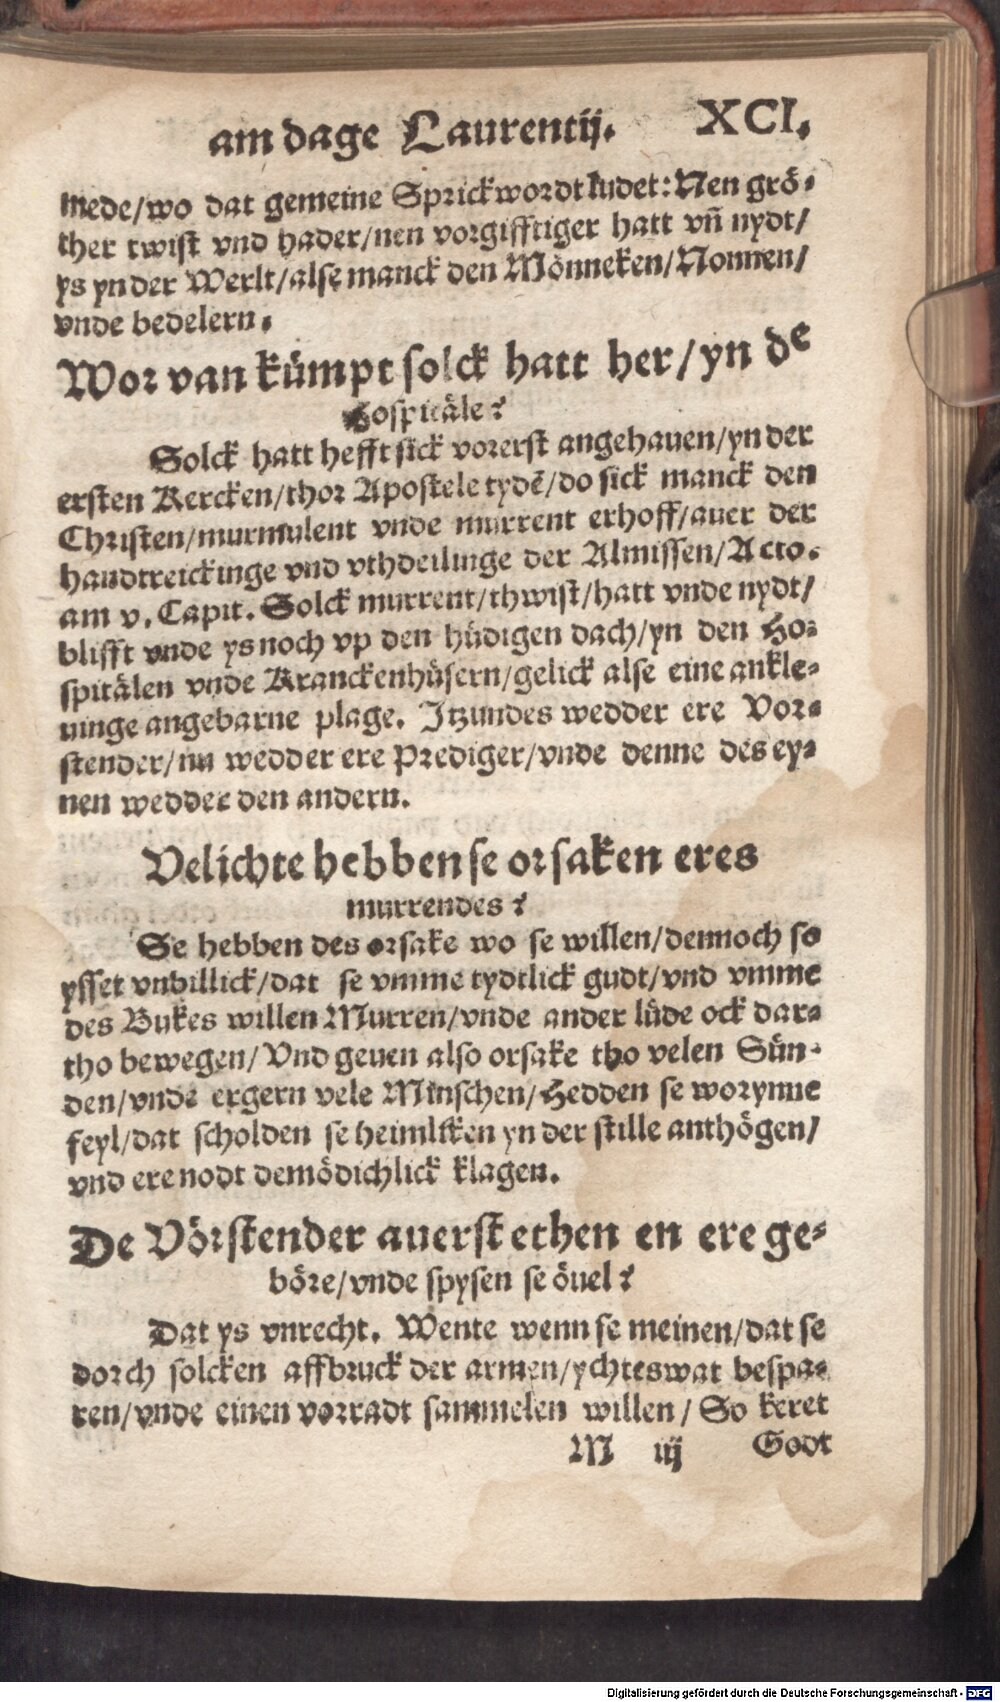 am dage Laurentij. XCI.
mede/wo dat gemeine Sprickwordt ludet: Nen grö-
ther twist vnd hader/nen vorgifftiger hatt vn̄ nydt/
ys yn der Werlt/alse manck den Mönneken/Nonnen/
vnde bedelern.
Wor van kümpt solck hatt her/yn de
Hospitäle?
Solck hatt hefft sick vorerst angehauen/yn der
ersten Kercken/thor Apostele tydē/do sick manck den
Christen/murmulent vnde murrent erhoff/auer der
handtreickinge vnd vthdeilinge der Almissen/Acto.
am v. Capit. Solck murrent/thwist/hatt vnde nydt/
blifft vnde ys noch vp den hüdigen dach/yn den Ho-
spitälen vnde Kranckenhüsern/gelick alse eine ankle-
uinge angebarne plage. Itzundes wedder ere Vor-
stender/nu wedder ere Prediger/vnde denne des ey-
nen wedder den andern.
Velichte hebben se orsaken eres
murrendes?
Se hebben des orsake wo se willen/dennoch so
ysset vnbillick/dat se vmme tydtlick gudt/vnd vmme
des Bukes willen Murren/vnde ander lüde ock dar-
tho bewegen/Vnd geuen also orsake tho velen Sün-
den/vnde ergern vele Minschen/Hedden se worynne
feyl/dat scholden se heimliken yn der stille anthögen/
vnd ere nodt demödichlick klagen.
De Vörstender auerst ethen en ere ge-
böre/vnde spysen se öuel?
Dat ys vnrecht. Wente wenn se meinen/dat se
dorch solcken affbruck der armen/ychteswat bespa-
ren/vnde einen vorradt sammelen willen/So keret
M iij Godt
Digitalisierung gefördert durch die Deutsche Forschungsgemeinschaft - DFG